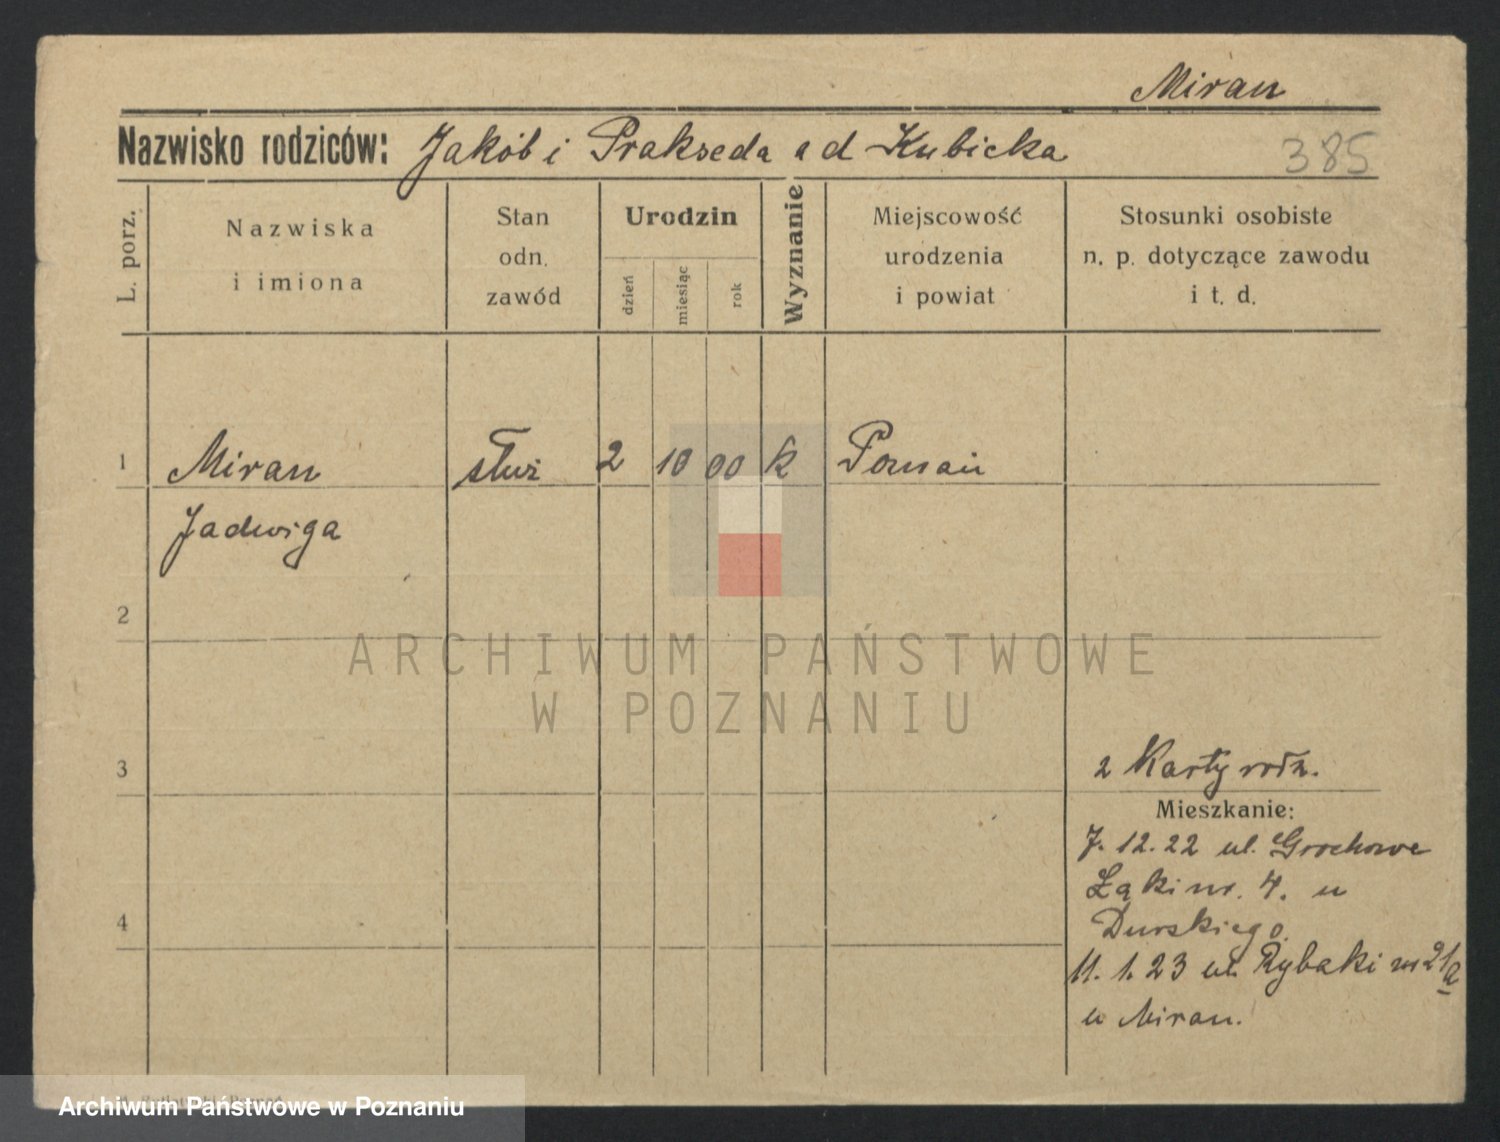 Miran
Nazwisko rodziców: Jakób i Prakseda a d Kubicka
385
L. porz.
Nazwiska
i imiona
Stan
odn.
zawód
Urodzin
dzień
miesiąc
rok
Wyznanie
Miejscowość
urodzenia
i powiat
Stosunki osobiste
n. p. dotyczące zawodu
i t. d.
1 Miran służ 2 10 00 k Poznań
Jadwiga
2
ARCHIWUM PAŃSTWOWE
W POZNANIU
3
2 Karty rodz.
Mieszkanie:
7. 12. 22 ul. Grochowe
Łąki nr. 4. u
4
Durskiego.
11. 1. 23 ul. Rybaki nr 21/a
u Miran.
Archiwum Państwowe w Poznaniu